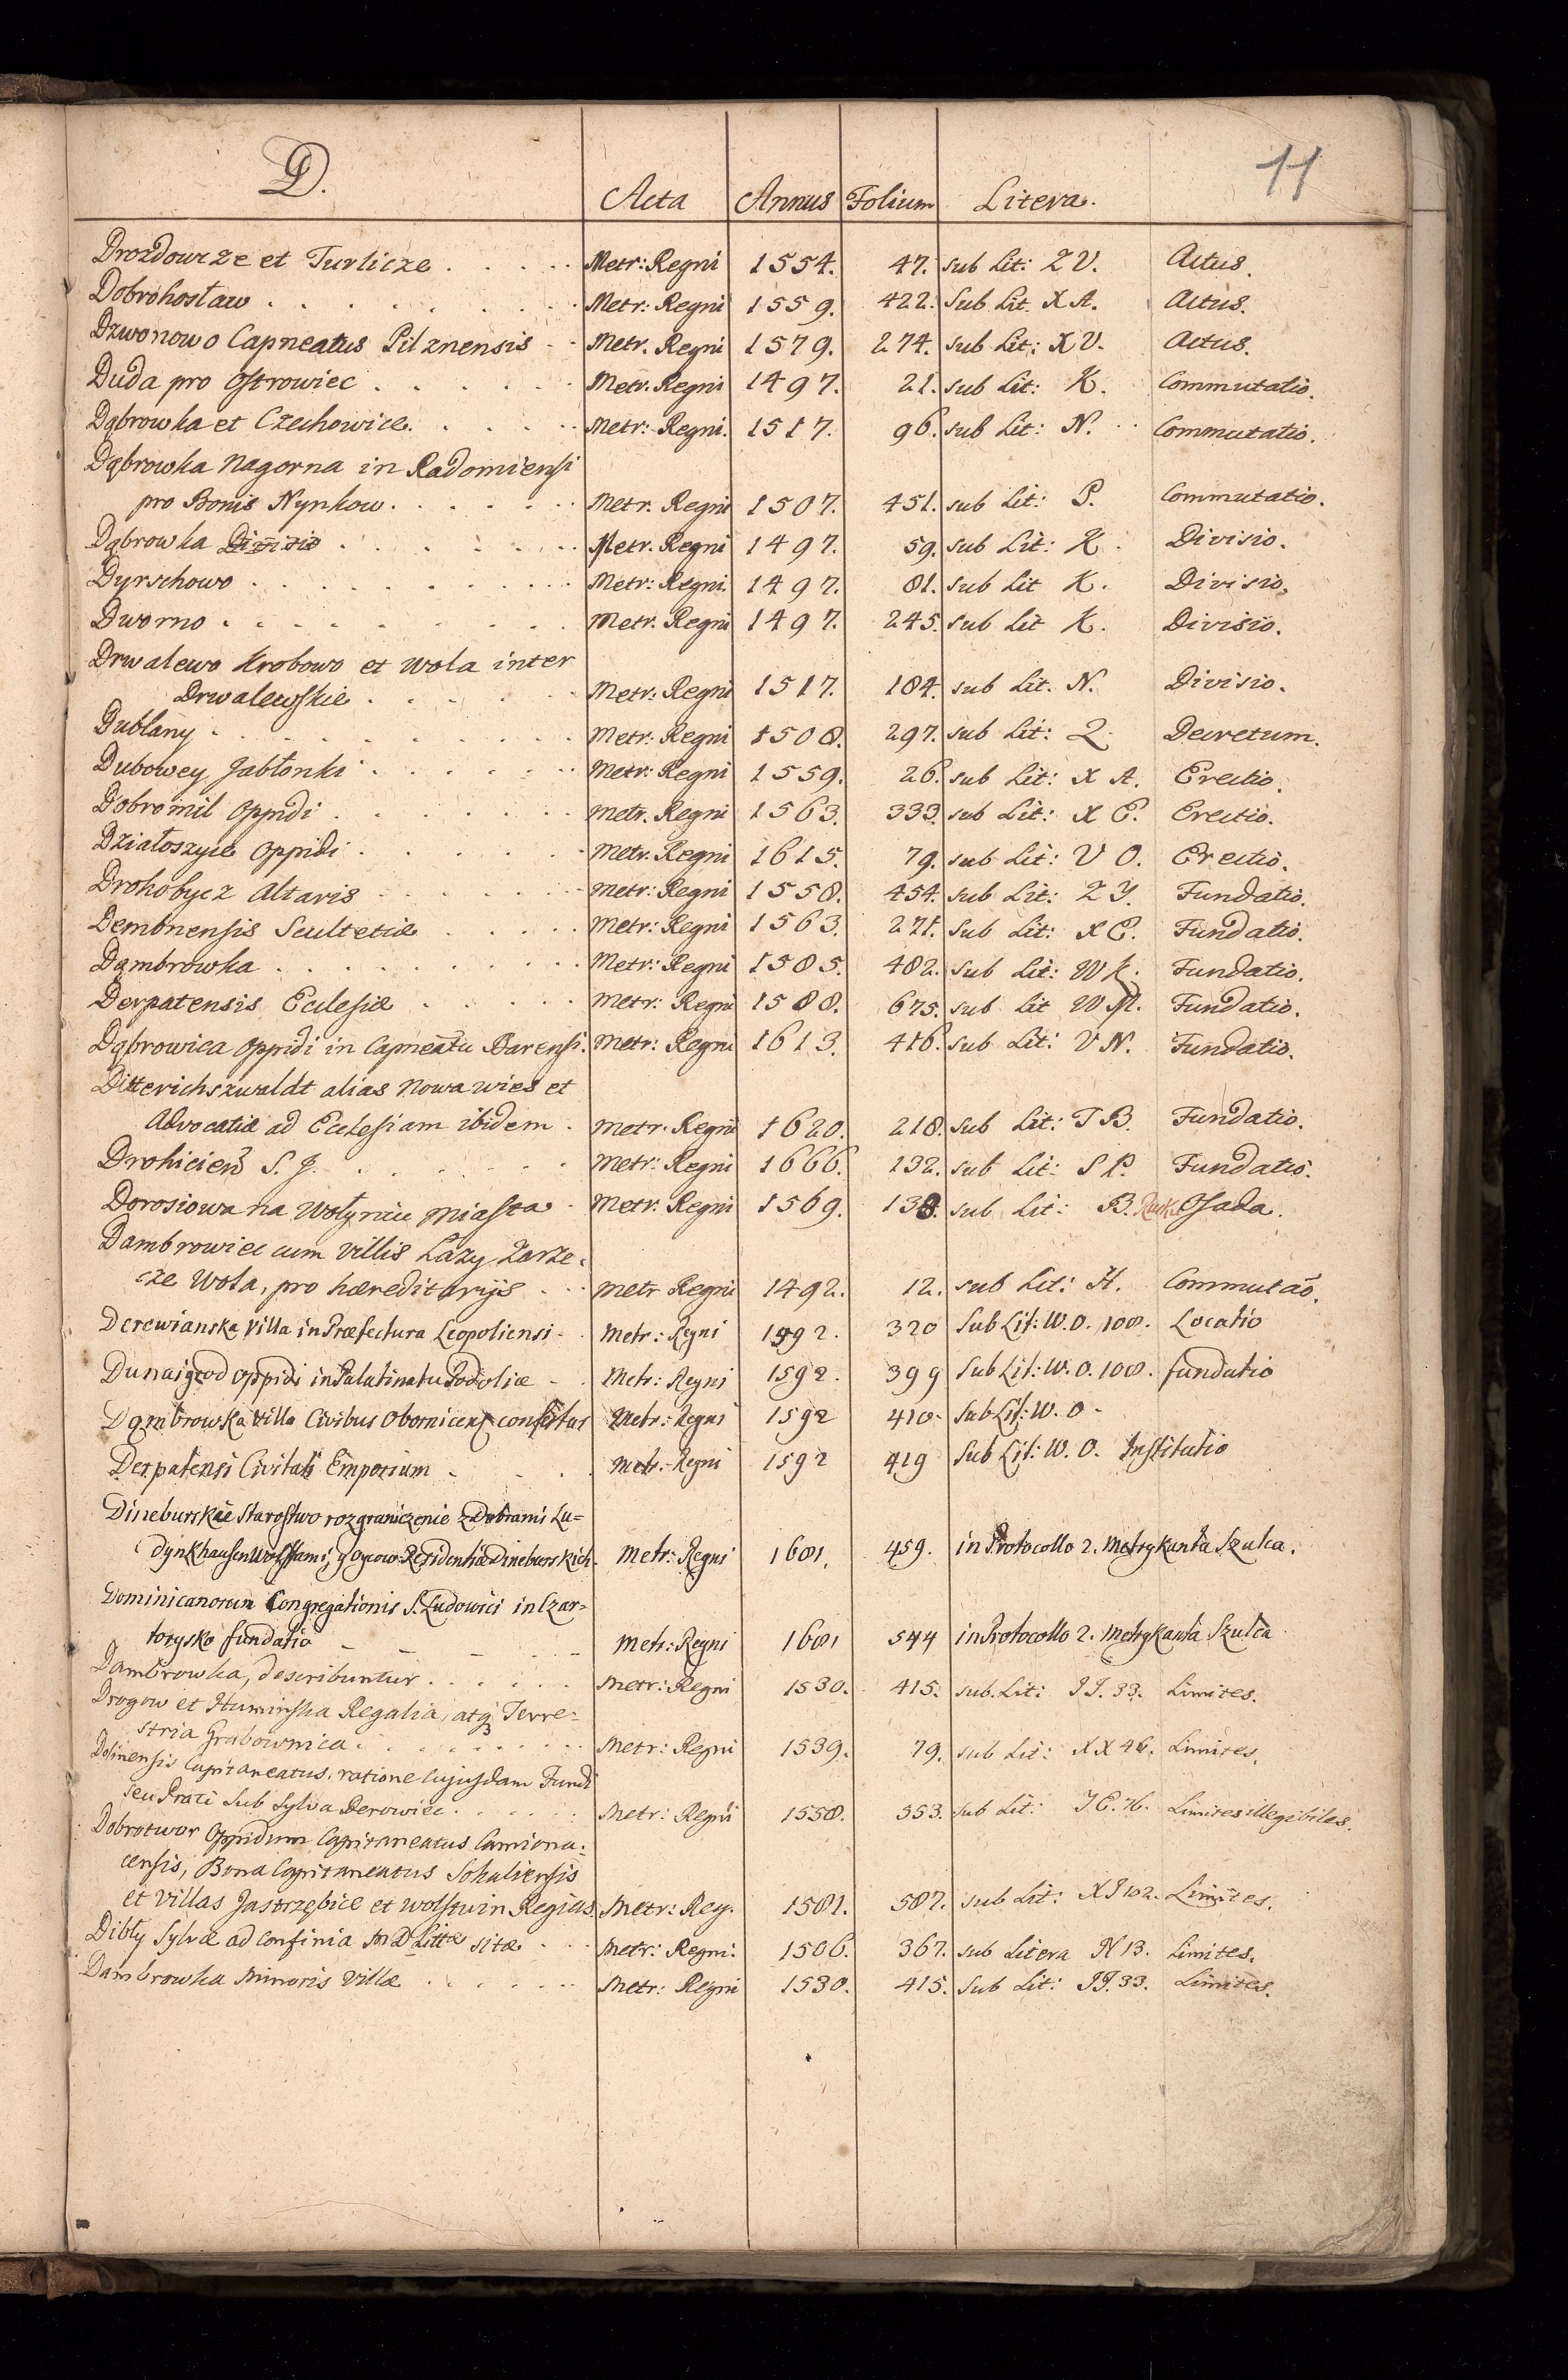 D.
11
Acta Annus Folium Litera.
Drozdowcze et Turlicze . . . . . Metr: Regni 1554. 47. sub Lit: Z V. Actus.
Dobrohostaw . . . . . . . . Metr: Regni 1559. 422. Sub Lit. X A. Actus.
Dzwonowo Capneatus Pilznensis - - Metr. Regni 1579. 274. sub Lit: X V. Actus.
Duda pro Ostrowiec . . . . . . Metr. Regni 1497. 21. sub Lit: K. Commutatio.
Dąbrowka et Czechowice . . . . . Metr: Regni. 1517. 96. sub Lit: N. Commutatio.
Dąbrowka Nagorna in Radomiensi
pro Bonis Nynkow . . . . . . Metr. Regni 1507. 451. sub Lit: P. Commutatio.
Dąbrowka Divisio . . . . . . Metr. Regni 1497. 59. sub Lit: K. Divisio.
Dyrschowo . . . . . . . . Metr: Regni. 1497. 81. sub Lit K. Divisio.
Dworno . . . . . . . . . Metr. Regni 1497. 245. sub Lit K. Divisio.
Drwalewo Krobowo et Wola inter
Drwalewskie . . . . . Metr: Regni 1517. 184. sub Lit. N. Divisio.
Dublany . . . . . . . . . Metr: Regni 1508. 297. sub Lit: Q. Decretum.
Dubowey Jabłonki . . . . . . Metr: Regni 1559. 26. sub Lit: X A. Erectio.
Dobromil Oppidi . . . . . . . Metr. Regni 1563. 333. sub Lit: X E. Erectio.
Działoszyce Oppidi . . . . . . Metr. Regni 1615. 79. sub Lit: V O. Erectio.
Drohobycz Altaris . . . . . . Metr: Regni 1558. 454. sub Lit: Z Y. Fundatio.
Dembnensis Scultetiæ . . . . . Metr: Regni 1563. 271. Sub Lit: X E. Fundatio.
Dąmbrowka . . . . . . . . Metr: Regni 1585. 482. Sub Lit: W K. Fundatio.
Derpatensis Ecclesiæ . . . . . Metr: Regni 1588. 675. sub Lit W M. Fundatio.
Dąbrowica Oppidi in Capneatu Barensi. Metr: Regni 1613. 416. sub Lit: V N. Fundatio.
Ditterichszwaldt alias Nowa wies et
Advocatiæ ad Ecclesiam ibidem . Metr. Regni 1620. 218. sub Lit: T B. Fundatio.
Drohicien S. J. . . . . . . . Metr: Regni 1666. 132. sub Lit: S P. Fundatio.
Dorosiowa na Wołyniu Miasta . Metr. Regni 1569. 138. sub Lit: B. Osada.
Dambrowiec cum villis Lazy Zarze=
cze Wola, pro hæreditarijs . . . Metr Regni 1492. 12. sub Lit: H. Commutaō.
Derewianska Villa in Præfectura Leopoliensi - Metr: Regni 1592. 320 Sub Lit: W. O. 100. Locatio
Dunaigrod Oppidi in Palatinatu Podoliæ - - Metr: Regni 1592. 399 Sub Lit: W. O. 100. fundatio
Dąmbrowka Villa Civibus Obornicens Metr: Regni 1592 410. Sub Lit: W. O -
Derpatensi Civitati Emporium - - - Metr: Regni 1592 419 Sub Lit: W. O. Institutio
Dineburskie Starostwo rozgraniczenie z Dobrami Lu=
dynkhausen Wolffami, y Oycow Residentiæ Dineburskich Metr: Regni 1681. 459. in Protocollo 2. Metrykanta Szulca.
Dominicanorum Congregationis S. Ludowici in Czar=
torysko fundatio - - - - Metr: Regni 1681 544 in Protocollo 2. Metrykanta Szulca
Dambrowka, describuntur . . . . . Metr: Regni 1530. 415. sub. Lit: J J. 33. Limites.
Drogow et Huminska Regalia, atq3 Terre=
stria Grabownica . . . . . . Metr: Regni 1539. 79. sub Lit: X X 46. Limites.
Dolinensis Capitaneatus. ratione cujusdam Fundi
seu Prati Sub Sylva Derowiec . . . . Metr: Regni 1558. 353. sub Lit: J E. 76. Limites illegibiles.
Dobrotwor Oppidum Capitaneatus Camiona=
censis, Bona Capitaneatus Sokaliensis
et villas Jastrzębice et Wolstwin Regias. Metr: Reg. 1581. 587. sub Lit: X J 102. Limites.
Dibły Sylvæ ad Confinia M D Littæ sitæ . . Metr: Regni. 1506. 367. sub Litera N 13. Limites.
Dambrowka Minoris Villæ . . . . . Metr: Regni 1530. 415. Sub Lit: J J. 33. Limites.